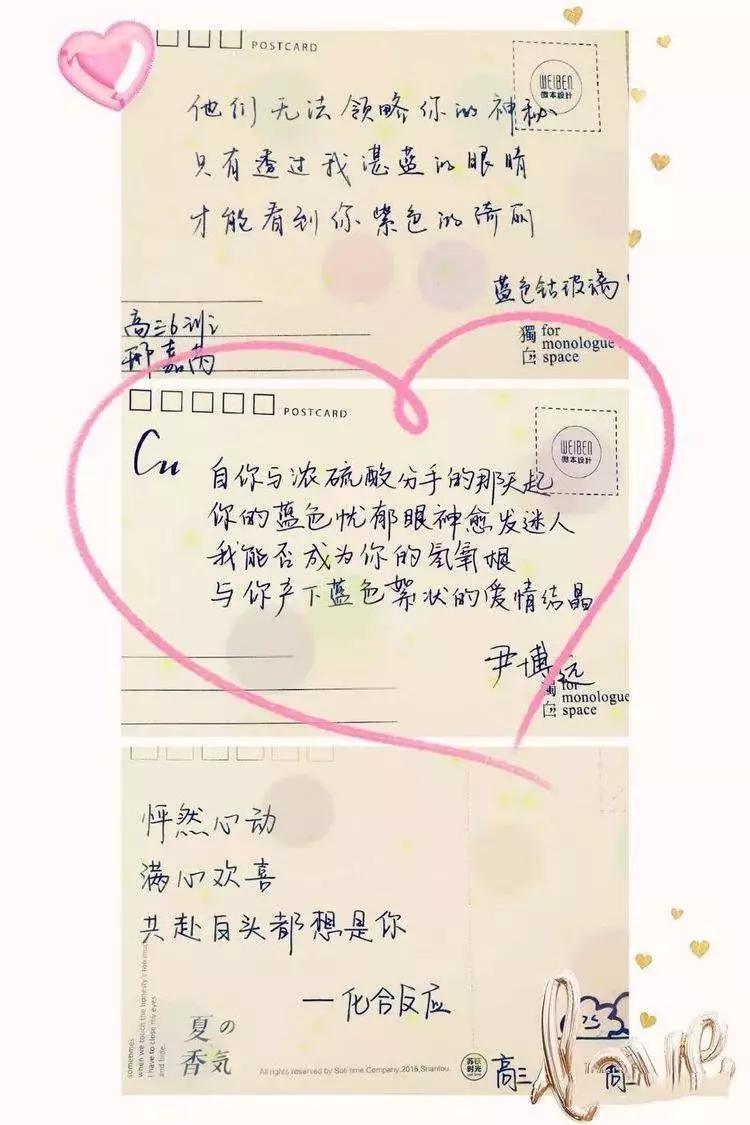 POSTCARD
WEIBEN
微本設計
他们无法领略你的神秘
只有透过我湛蓝的眼睛
才能看到你紫色的绮丽
蓝色钴玻璃
高三6班
邢嘉芮
獨白 for
monologue
space
POSTCARD
WEIBEN
微本設計
Cu
自你与浓硫酸分手的那天起
你的蓝色忧郁眼神愈发迷人
我能否成为你的氢氧根
与你产下蓝色絮状的爱情结晶
尹博远
獨白 for
monologue
space
怦然心动
满心欢喜
共赴白头都想是你
一化合反应
sometimes
when we touch the honesty's too much
I have to close my eyes
and hide.
夏の
香気
All rights reserved by Soti time Company,2016,Shantou.
苏铁
时光
高三
高二
love